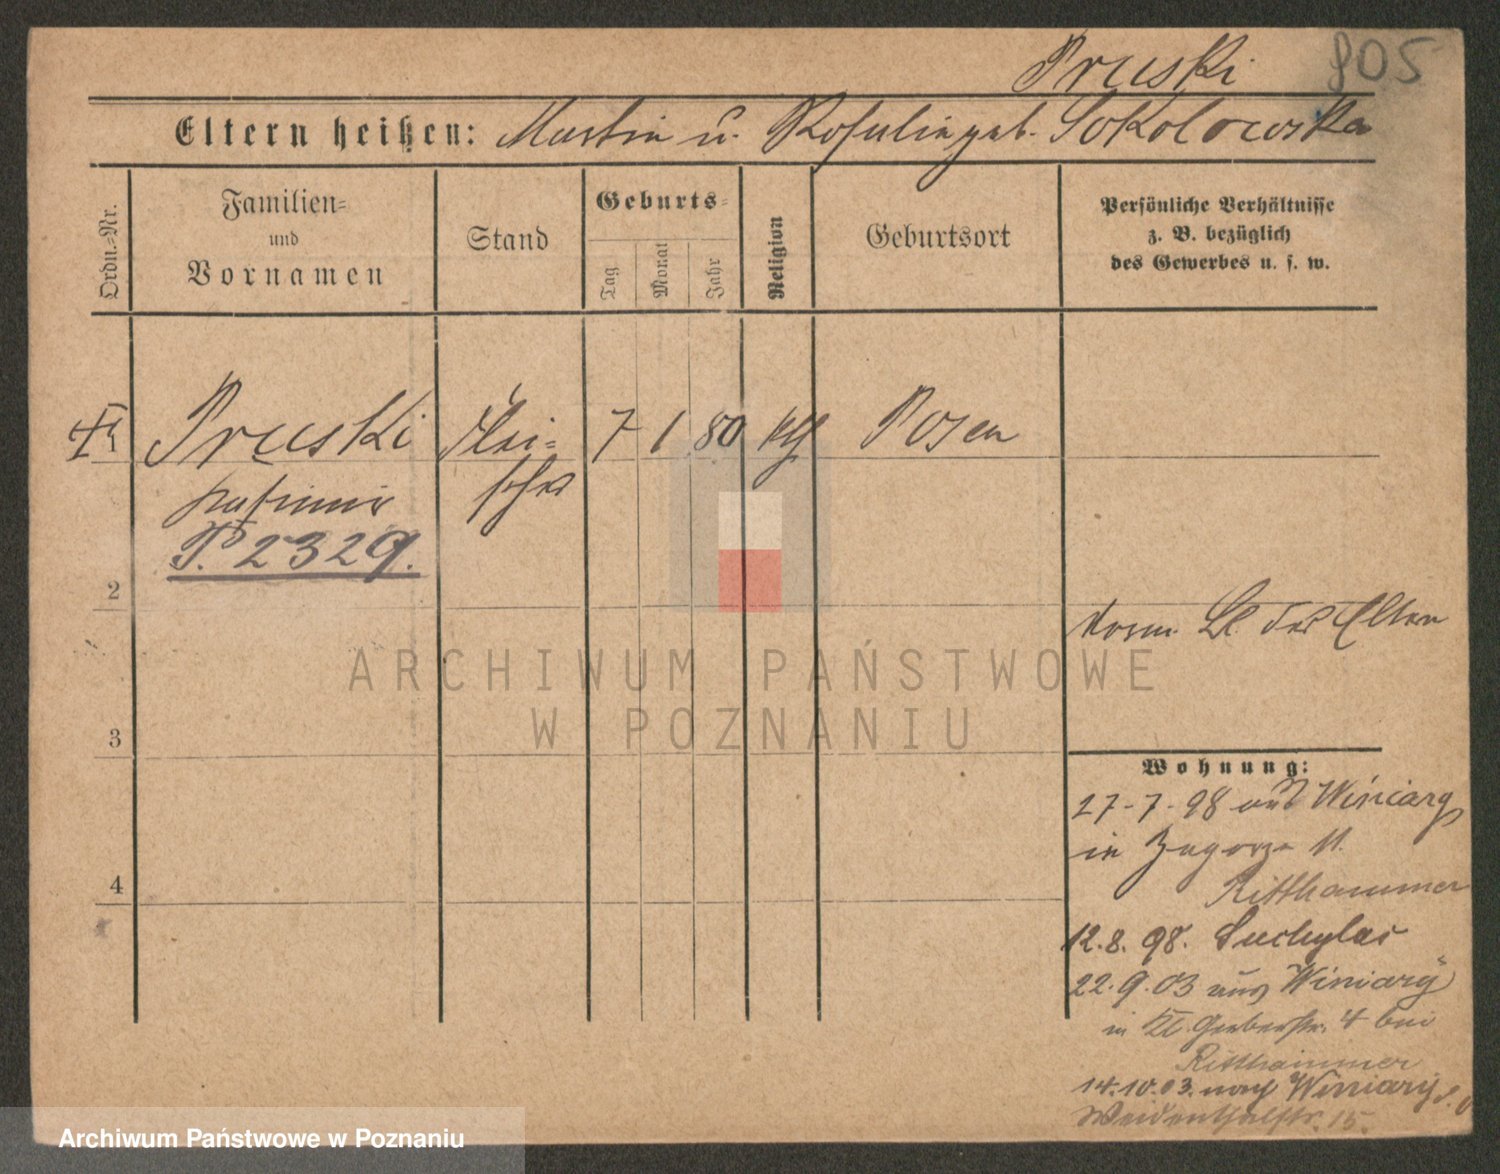 Pruski 905
Eltern heißen: Martin u. Rosalie geb. Sokolowska
Ordn.-Nr.
Familien-
und
Vornamen
Stand
Geburts-
Tag
Monat
Jahr
Religion
Geburtsort
Persönliche Verhältnisse
z. B. bezüglich
des Gewerbes u. s. w.
Pruski Flei- 7 1 80 kth Posen
Kasimir scher
P. 2329.
2
vorm. Bl. des Eltern
ARCHIWUM PAŃSTWOWE
W POZNANIU
3
Wohnung:
27-7-98 aus Winiary
in Zagorze 11.
Ritthammer
4
12.8.98. Suchylas
22.9.03 aus Winiary
in Kl. Gerberstr. 4 bei
Ritthammer
14.10.03. nach Winiary
Weidenthalstr. 15.
Archiwum Państwowe w Poznaniu